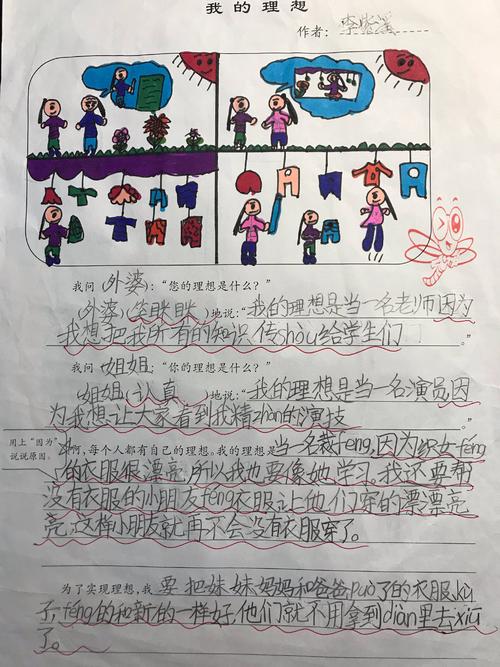 我的理想
作者：李
我问（外婆）：“您的理想是什么？”
（外婆）（笑眯眯）地说：“我的理想是当一名老师因为
我想把我所有的知识传shòu给学生们。”
我问（姐姐）：“你的理想是什么？”
（姐姐）（认真）地说：“我的理想是当一名演员因
为我想让大家看到我精zhàn的演技。”
用上“因为”
说说原因。
呵，每个人都有自己的理想。我的理想是当一名裁féng，因为织女féng
的衣服很漂亮，所以我也要像她学习。我还要帮
没有衣服的小朋友féng衣服，让他们穿的漂漂亮
亮，这样小朋友就再不会没有衣服穿了。
为了实现理想，我要把妹妹妈妈和爸爸può了的衣服，kù
子，féng的和新的一样好，他们就不用拿到diàn里去xiū
了。